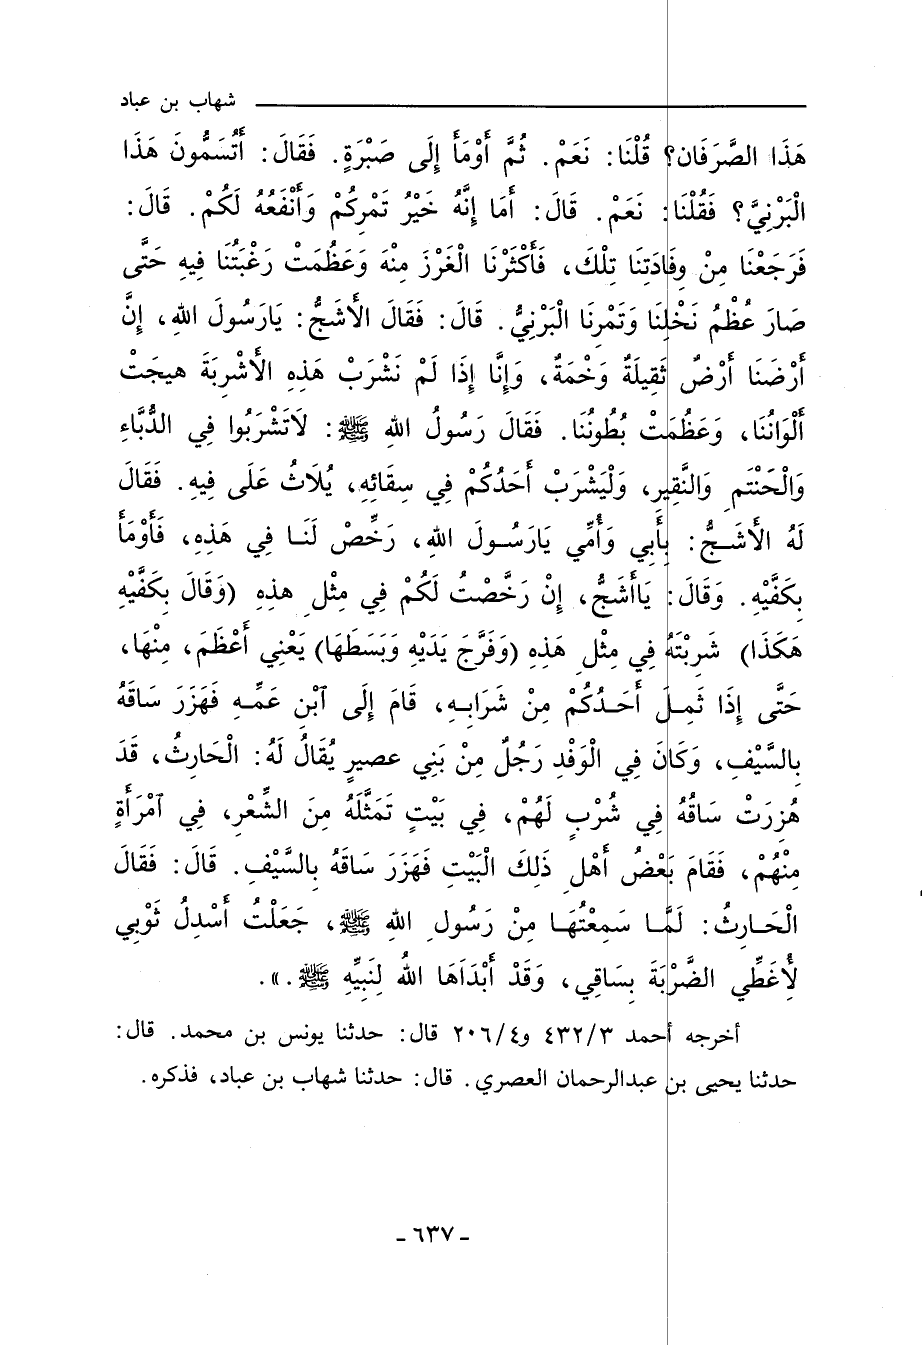 شهاب بن عباد
هَذَا الصَّرَفَان؟ قُلْنَا: نَعَمْ. ثُمَّ أَوْمَأَ إِلَى صَبْرَةٍ. فَقَالَ: أَتُسَمُّونَ هَذَا
الْبَرْنِيَّ؟ فَقُلْنَا: نَعَمْ. قَالَ: أَمَا إِنَّهُ خَيْرُ تَمْرِكُمْ وَأَنْفَعُهُ لَكُمْ. قَالَ:
فَرَجَعْنَا مِنْ وِفَادَتِنَا تِلْكَ، فَأَكْثَرْنَا الْغَرْزَ مِنْهَ وَعَظُمَتْ رَغْبَتُنَا فِيهِ حَتَّى
صَارَ عُظْمُ نَخْلِنَا وَتَمْرِنَا الْبَرْنِيُّ. قَالَ: فَقَالَ الأَشَجُّ: يَارَسُولَ اللهِ، إِنَّ
أَرْضَنَا أَرْضٌ ثَقِيلَةٌ وَخْمَةٌ، وَإِنَّا إِذَا لَمْ نَشْرَبْ هَذِهِ الأَشْرِبَةَ هيجَتْ
أَلْوَانُنَا، وَعَظُمَتْ بُطُونُنَا. فَقَالَ رَسُولُ اللهِ ﷺ: لَاتَشْرَبُوا فِي الدُّبَّاءِ
وَالْحَنْتَمِ وَالنَّقِيرِ، وَلْيَشْرَبْ أَحَدُكُمْ فِي سِقَائِهِ، يُلَاثُ عَلَى فِيهِ. فَقَالَ
لَهُ الأَشَجُّ: بِأَبِي وَأُمِّي يَارَسُولَ اللهِ، رَخِّصْ لَنَا فِي هَذِهِ، فَأَوْمَأَ
بِكَفَّيْهِ. وَقَالَ: يَاأَشَجُّ، إِنْ رَخَّصْتُ لَكُمْ فِي مِثْلِ هذِهِ (وَقَالَ بِكَفَّيْهِ
هَكَذَا) شَرِبْتَهُ فِي مِثْلِ هَذِهِ (وَفَرَّجَ يَدَيْهِ وَبَسَطَهَا) يَعْنِي أَعْظَمَ، مِنْهَا،
حَتَّى إِذَا ثَمِلَ أَحَدُكُمْ مِنْ شَرَابِهِ، قَامَ إِلَى ٱبْنِ عَمِّهِ فَهَزَرَ سَاقَهُ
بِالسَّيْفِ، وَكَانَ فِي الْوَفْدِ رَجُلٌ مِنْ بَنِي عصيرٍ يُقَالُ لَهُ: الْحَارِثُ، قَدَ
هُزِرَتْ سَاقُهُ فِي شُرْبٍ لَهُمْ، فِي بَيْتٍ تَمَثَّلَهُ مِنَ الشِّعْرِ، فِي ٱمْرَأَةٍ
مِنْهُمْ، فَقَامَ بَعْضُ أَهْلِ ذَلِكَ الْبَيْتِ فَهَزَرَ سَاقَهُ بِالسَّيْفِ. قَالَ: فَقَالَ
الْحَارِثُ: لَمَّا سَمِعْتُهَا مِنْ رَسُولِ اللهِ ﷺ، جَعَلْتُ أَسْدِلُ ثَوْبِي
لُأِغَطِّي الضَّرْبَةَ بِسَاقِي، وَقَدْ أَبْدَاَهَا اللهُ لِنَبِيِّهِ ﷺ.».
أخرجه أحمد ٤٣٢/٣ و٢٠٦/٤ قال: حدثنا يونس بن محمد. قال:
حدثنا يحيى بن عبدالرحمان العصري. قال: حدثنا شهاب بن عباد، فذكره.
- ٦٣٧ -